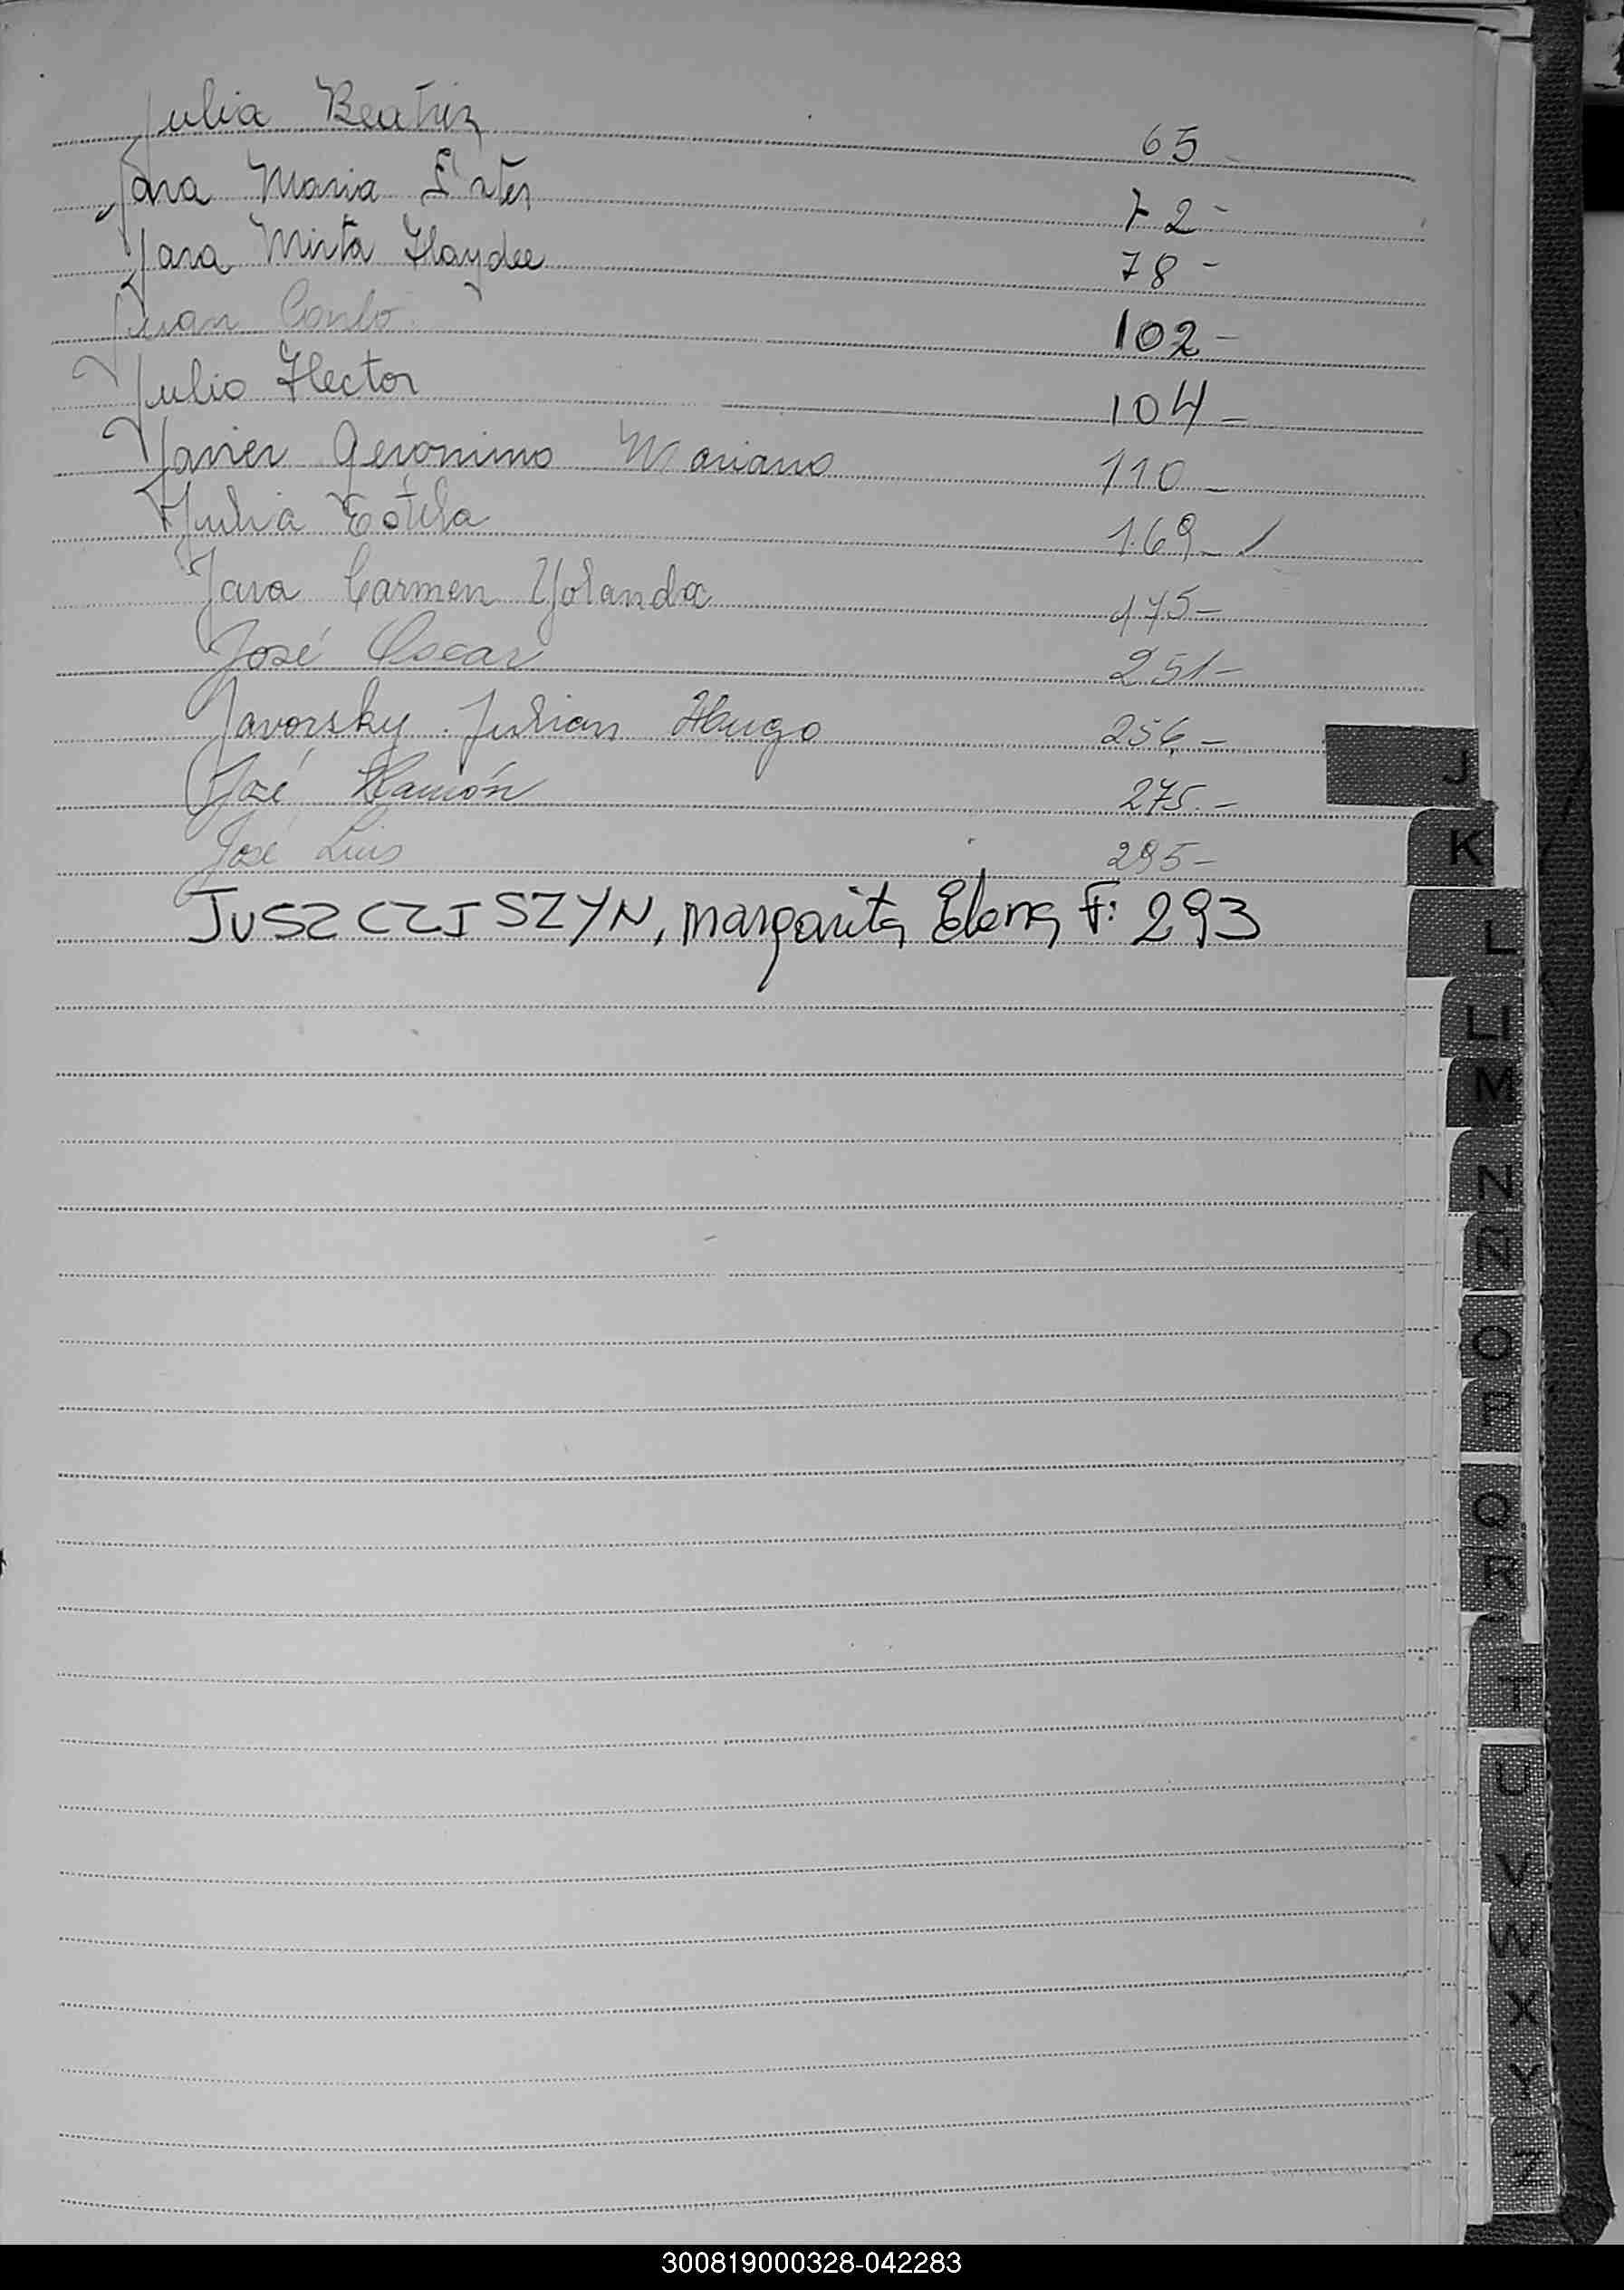 Julia Beatriz 65
Jara Maria Ester 72-
Jara Mirta Haydee 78-
Juan 102-
Julio Hector 104-
Javier Geronimo Mariano 110-
Julia 169-/
Jara Carmen Yolanda 175-
José Oscar 251-
Javorsky Julian Hugo 256,-
José Ramón 275.-
José Luis 295-
JUSZCZISZYN, Margarita Elena F: 293
J
K
L
Ll
M
N
Ñ
O
P
Q
R
T
U
V
W
X
Y
Z
300819000328-042283